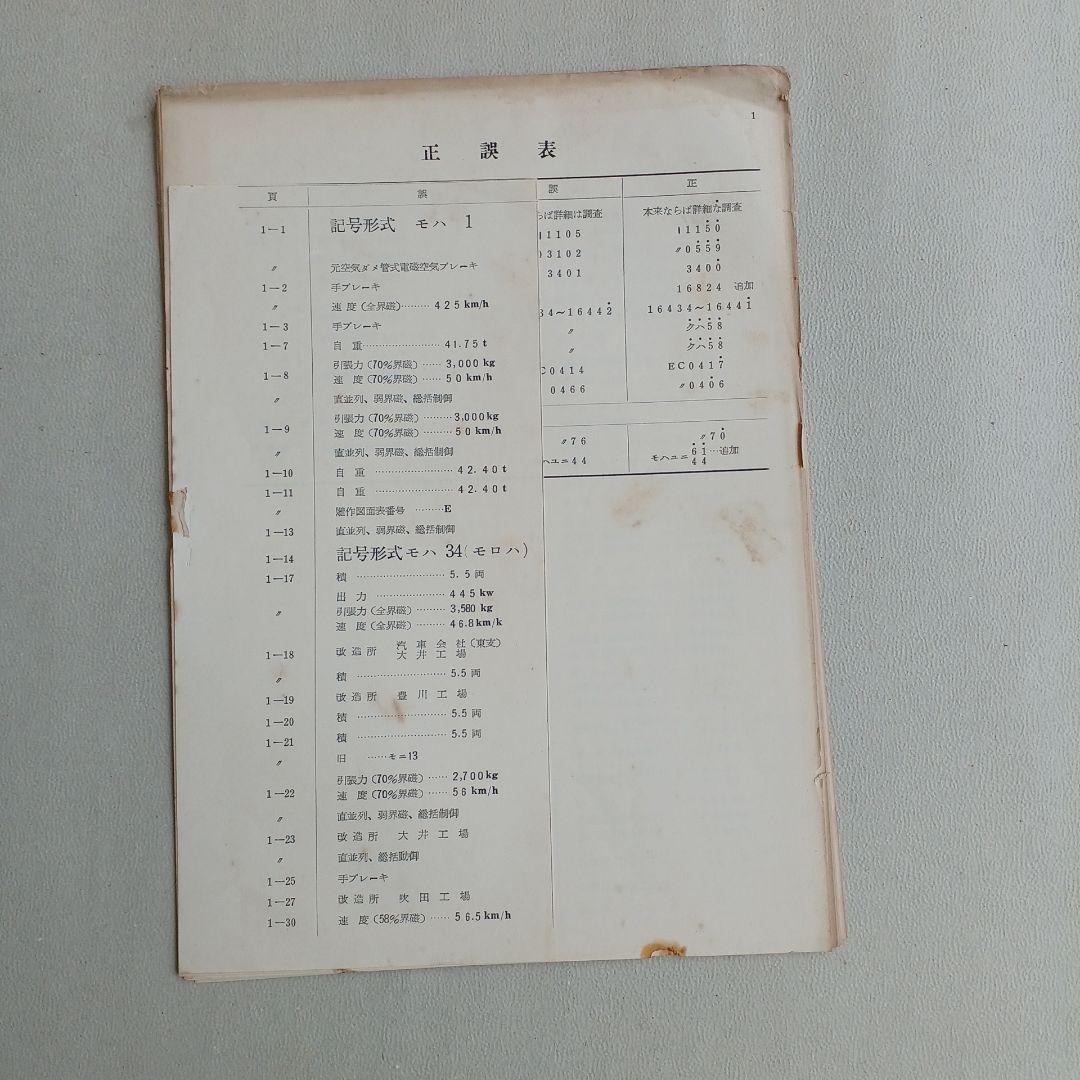 1
正誤表
頁 誤
1—1 記号形式 モハ 1
〃 元空気ダメ管式電磁空気ブレーキ
1—2 手ブレーキ
〃 速度(全界磁)……… 425 km/h
1—3 手ブレーキ
1—7 自重………………… 41.75 t
引張力(70%界磁)…… 3,000 kg
1—8 速度(70%界磁)…… 50 km/h
〃 直並列、弱界磁、総括制御
引張力(70%界磁)……… 3,000kg
1—9 速度(70%界磁)……… 50 km/h
〃 直並列、弱界磁、総括制御
1—10 自重 ………………… 42.40 t
1—11 自重 ………………… 42.40 t
〃 図面表番号 ………E
1—13 直並列、弱界磁、総括制御
1—14 記号形式モハ 34(モロハ)
1—17 積 ……………………… 5.5両
出力 ………………… 445 kw
〃 引張力(全界磁)……… 3,580 kg
速度(全界磁)……… 46.8km/k
1—18 改造所 汽車会社(東支)
大井工場
〃 積 ……………………… 5.5両
1—19 改造所 豊川工場
1—20 積 ……………………… 5.5両
1—21 積 ……………………… 5.5両
〃 旧 ……モニ13
引張力(70%界磁)…… 2,700kg
1—22 速度(70%界磁)…… 56 km/h
〃 直並列、弱界磁、総括制御
1—23 改造所 大井工場
〃 直並列、総括動御
1—25 手ブレーキ
1—27 改造所 吹田工場
1—30 速度(58%界磁)…… 56.5km/h
誤 正
らば詳細は調査 本来ならば詳細な調査
1105 〃1150
03102 〃0559
3401 3400
16824 追加
34〜16442 16434〜16441
〃 クハ58
〃 クハ58
C0414 EC0417
0466 〃0406
〃76 〃70
ハユニ44 モハユニ 61 44 …追加